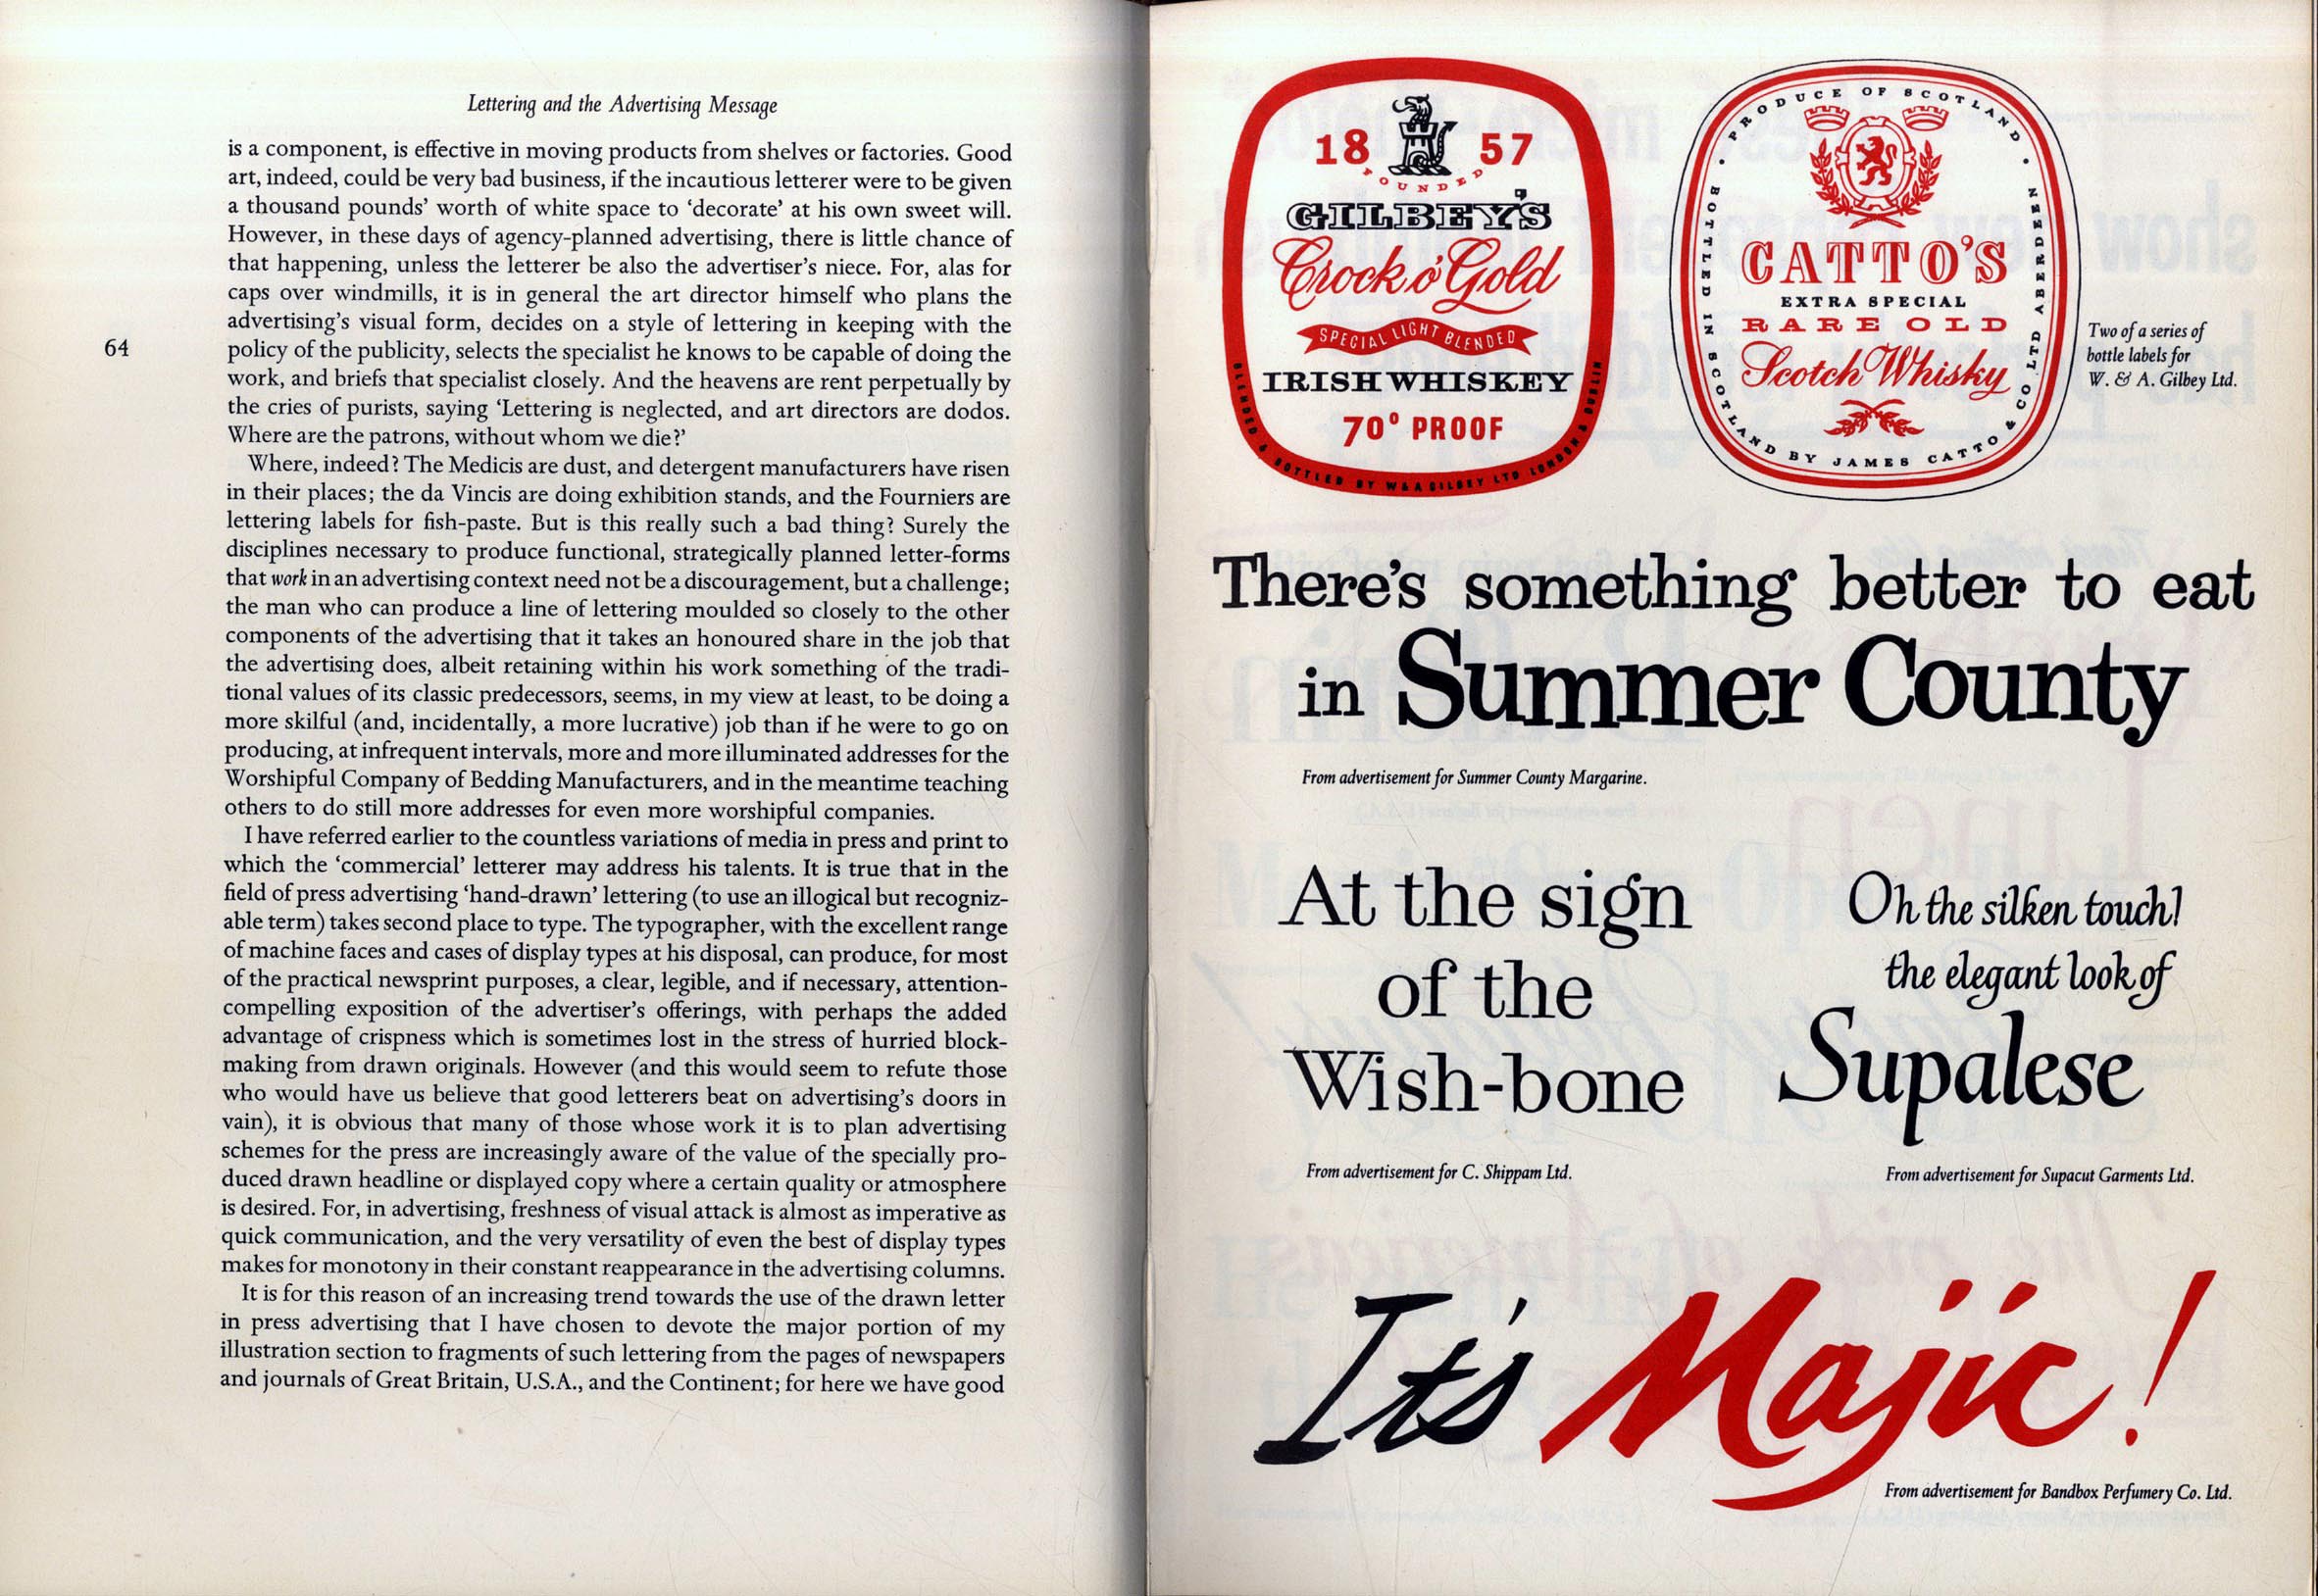 Lettering and the Advertising Message
is a component, is effective in moving products from shelves or factories. Good
art, indeed, could be very bad business, if the incautious letterer were to be given
a thousand pounds’ worth of white space to ‘decorate’ at his own sweet will.
However, in these days of agency-planned advertising, there is little chance of
that happening, unless the letterer be also the advertiser’s niece. For, alas for
caps over windmills, it is in general the art director himself who plans the
advertising’s visual form, decides on a style of lettering in keeping with the
64
policy of the publicity, selects the specialist he knows to be capable of doing the
work, and briefs that specialist closely. And the heavens are rent perpetually by
the cries of purists, saying ‘Lettering is neglected, and art directors are dodos.
Where are the patrons, without whom we die?’
Where, indeed? The Medicis are dust, and detergent manufacturers have risen
in their places; the da Vincis are doing exhibition stands, and the Fourniers are
lettering labels for fish-paste. But is this really such a bad thing? Surely the
disciplines necessary to produce functional, strategically planned letter-forms
that work in an advertising context need not be a discouragement, but a challenge;
the man who can produce a line of lettering moulded so closely to the other
components of the advertising that it takes an honoured share in the job that
the advertising does, albeit retaining within his work something of the tradi-
tional values of its classic predecessors, seems, in my view at least, to be doing a
more skilful (and, incidentally, a more lucrative) job than if he were to go on
producing, at infrequent intervals, more and more illuminated addresses for the
Worshipful Company of Bedding Manufacturers, and in the meantime teaching
others to do still more addresses for even more worshipful companies.
I have referred earlier to the countless variations of media in press and print to
which the ‘commercial’ letterer may address his talents. It is true that in the
field of press advertising ‘hand-drawn’ lettering (to use an illogical but recogniz-
able term) takes second place to type. The typographer, with the excellent range
of machine faces and cases of display types at his disposal, can produce, for most
of the practical newsprint purposes, a clear, legible, and if necessary, attention-
compelling exposition of the advertiser’s offerings, with perhaps the added
advantage of crispness which is sometimes lost in the stress of hurried block-
making from drawn originals. However (and this would seem to refute those
who would have us believe that good letterers beat on advertising’s doors in
vain), it is obvious that many of those whose work it is to plan advertising
schemes for the press are increasingly aware of the value of the specially pro-
duced drawn headline or displayed copy where a certain quality or atmosphere
is desired. For, in advertising, freshness of visual attack is almost as imperative as
quick communication, and the very versatility of even the best of display types
makes for monotony in their constant reappearance in the advertising columns.
It is for this reason of an increasing trend towards the use of the drawn letter
in press advertising that I have chosen to devote the major portion of my
illustration section to fragments of such lettering from the pages of newspapers
and journals of Great Britain, U.S.A., and the Continent; for here we have good
18 57
FOUNDED
GILBEY’S
Crock o’ Gold
SPECIAL LIGHT BLENDED
IRISH WHISKEY
70° PROOF
BLENDED & BOTTLED BY W & A GILBEY LTD LONDON & DUBLIN
PRODUCE OF SCOTLAND
CATTO’S
EXTRA SPECIAL
RARE OLD
Scotch Whisky
BOTTLED IN SCOTLAND BY JAMES CATTO & CO LTD ABERDEEN
Two of a series of
bottle labels for
W. & A. Gilbey Ltd.
There’s something better to eat
in Summer County
From advertisement for Summer County Margarine.
At the sign
of the
Wish-bone
From advertisement for C. Shippam Ltd.
Oh the silken touch!
the elegant look of
Supalese
From advertisement for Supacut Garments Ltd.
It’s Majic!
From advertisement for Bandbox Perfumery Co. Ltd.